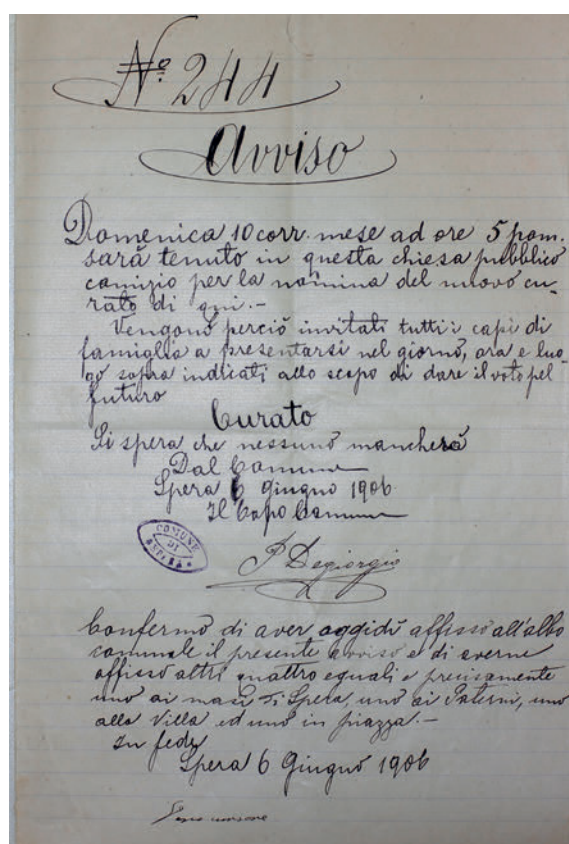 No. 244
Avviso
Domenica 10 corr. mese ad ore 5 pom.
sarà tenuto in questa chiesa pubblico
comizio per la nomina del nuovo cu-
rato di qui.-
Vengono perciò invitati tutti i capi di
famiglia a presentarsi nel giorno, ora e luo-
go sopra indicati allo scopo di dare il voto pel
futuro
Curato
Si spera che nessuno mancherà
Dal Comune
Spera 6 giugno 1906
Il Capo Comune
COMUNE
DI
SPERA
P Degiorgio
Confermo di aver oggidì affisso all'albo
comunale il presente avviso e di averne
affisso altri quattro eguali e precisamente
uno ai masi di Spera, uno ai Paterni, uno
alla Villa ed uno in piazza.-
In fede
Spera 6 Giugno 1906